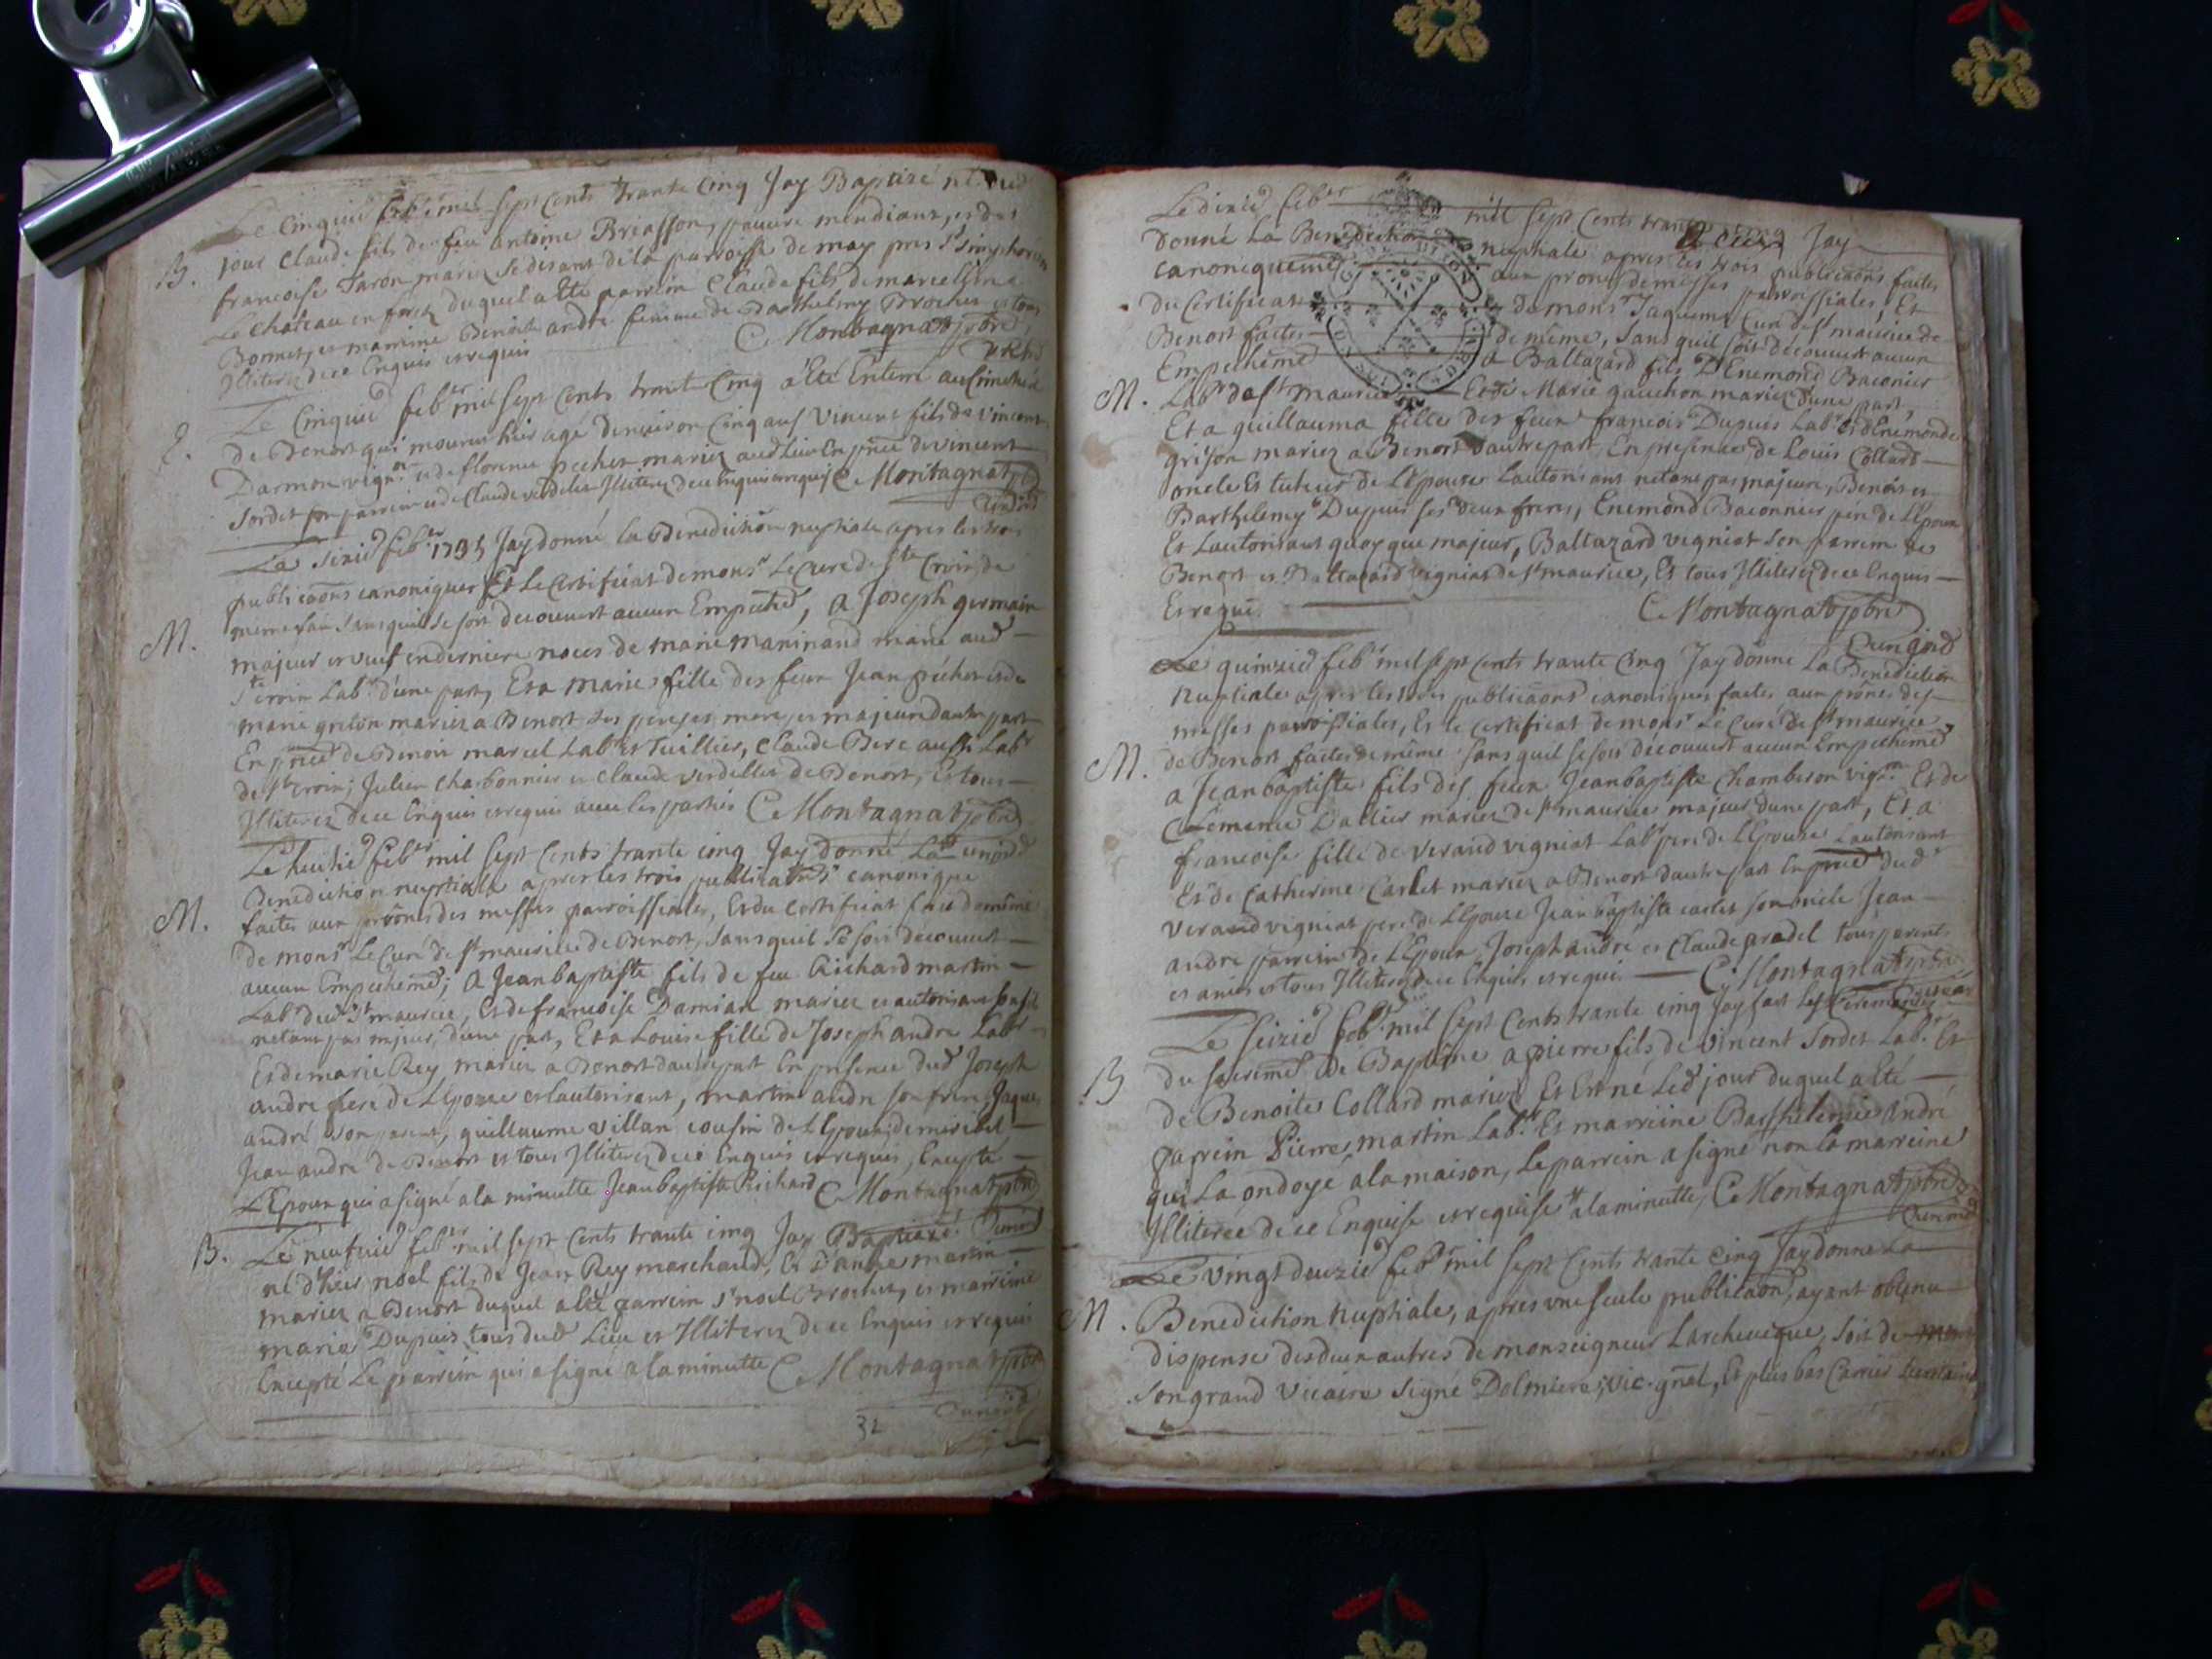 Le cinquie febr mil sept cents trante cinq Jay Baptizé né dud
B. jour Claude fils de feu antoine Briasson, pauvre mendiant, et de
francoise Taron mariez se disant de la parroisse de may pres St simphorien
Le chateau en forez duquel a ete parrein Claude fils de marcel
Bonnet, et marreine Benoite andre femme de Barthelmy Brochu et tous
Illiterez de ce Enquis et requis C Montagnat pbre
Le Cinquie febr mil sept cents trante Cinq a été Enterré au Cimetiere
de Benost qui mourut hier agé denviron cinq ans Vincent fils de vincent
Darmon vign.on et de florence pecher mariez aud Lieu En pnce de vincent
Sordet son parrein et de Claude verdelet Illiterez de ce Enquis et requis C Montagnat pb
Le sixie feb.er 1735 Jay donné la Benediction nuptiale apres les trois
publicaons canoniques Et Le Certificat de monsr Le curé de Ste Croix, de
M. meme sans quil se soit decouvert aucun Empeche, a Joseph germain
majeur et veuf en derniere noces de marie maninand marié aud
Ste croix Labr d'une part, Et a Marie fille des feux Jean pécher et de
marie grison mariez a Benost ses pere et mere, et majeure dautre part
En pnce de Benoit marcel Labr et Tuillier, Claude Bere aussi Labr
de Ste croix; Julien charbonnier et Claude verdellet de Benost, Et tous
Illiterez de ce Enquis et requis avec les parties C Montagnat pbre
Le huitie febr mil sept cents trante cinq Jay donné La
Benediction nuptiale apres les trois publications canonique
M. faites aux prônes des messes parroissiales, Et du certificat faict de même
de monsr Le Curé de St maurice de Benost, sans quil se soit decouvert
aucun Empecheme; a Jean baptiste fils de feu Richard martin
Labr dud St maurice, Et de francoise Damian mariez et
netant pas majeur, d'une part, Et a Louise fille de Joseph andre Labr
Et de marie Rey mariez a Benost dautre part En presence dud Joseph
andre pere de LEpouse et Lautorisant, martin andre son frere Jaques
andré son parent, guillaume villan cousin de LEpoux, de miribel
Jean andré de Benost et tous Illiterez de ce Enquis et requis, Excepté
LEpoux qui a signé a la minutte Jean baptiste Richard C Montagnat pbre
B. Le neufvie febr mil sept cents trante cinq Jay Baptizé
né d'hier noel fils de Jean Rey marchand, Et D'anne martin
mariez a Benost duquel a été parrein Sr noel Brochu, et marreine
marie Dupuis tous dud Lieu et Illiterez de ce Enquis et requis
Excepté Le parrein qui a signé a la minutte C Montagnat pbre
32
Le dixie febr mil sept cents trante cinq Jay
Donné La Benediction nuptiale apres les trois publicaons faites
canoniqueme aux prones de messes parroissiales, Et
du Certificat de monsr Jaquemet Curé de St maurice de
Benost faites de même, sans quil soit découvert aucun
Empecheme a Baltazard fils D'Enemond Baconier
M. Labr de St maurice Et de Marie gauchon mariez d'une part,
Et a guillauma fille des feux francois Dupuis Labr et d'Enemonde
grison mariez a Benost dautre part, En presence de Louis Collard
oncle Et tuteur de LEpouse Lautorisant netant pas majeure, Benoit et
Barthelemy Dupuis ses deux freres, Enemond Baconnier pere de LEpoux
Et Lautorisant quoy que majeur, Baltazard vigniat son parrein de
Benost et Baltazard vigniat de St maurice, Et tous Illiterez de ce Enquis
Et requi. C Montagnat pbre
Le quinzie febr mil sept cents trante Cinq Jay donné La Benediction
Nuptiale apres les trois publicaons canoniques faites aux prônes des
messes parroissiales, Et le certificat de monsr Le Curé de St maurice
M. de Benost faites de même sans quil se soit decouvert aucun Empecheme
a Jean baptiste fils des feux Jean baptiste Chamberon vign.on Et de
Clemence Dallier mariez de St maurice majeur dune part, Et a
francoise fille de verand vigniat Labr pere de LEpouse Lautorisant
Et de Catherine Carlet mariez a Benost dautre part En pnce dud
verand vigniat pere de LEpouse Jean baptiste carlet son oncle Jean
andre parrein de LEpoux, Joseph andré et Claude pradel tous parents
et amis et tous Illiterez de ce Enquis et requi. C Montagnat pbre
Le seizie febr mil sept cents trante cinq Jay fait Les Ceremonies
B du sacreme de Baptême a pierre fils de vincent Sordet Labr. Et
de Benoite Collard mariez Et Est né Led jour duquel a été
parrein Pierre martin Labr. Et marreine Barthelemie André
qui La ondoyé a la maison, Le parrein a signé non la marreine
Illiterée de ce Enquise et requise a la minutte, C Montagnat pbre
Le vingt deuzie febr mil sept cents trante cinq Jay donné La
M. Benediction Nuptiale, apres une seule publicaon, ayant obtenu
dispense des deux autres de monseigneur Larcheveque, soit de
son grand vicaire signé Dolmieres, vic. gnal, Et plus bas Carrier secretaire